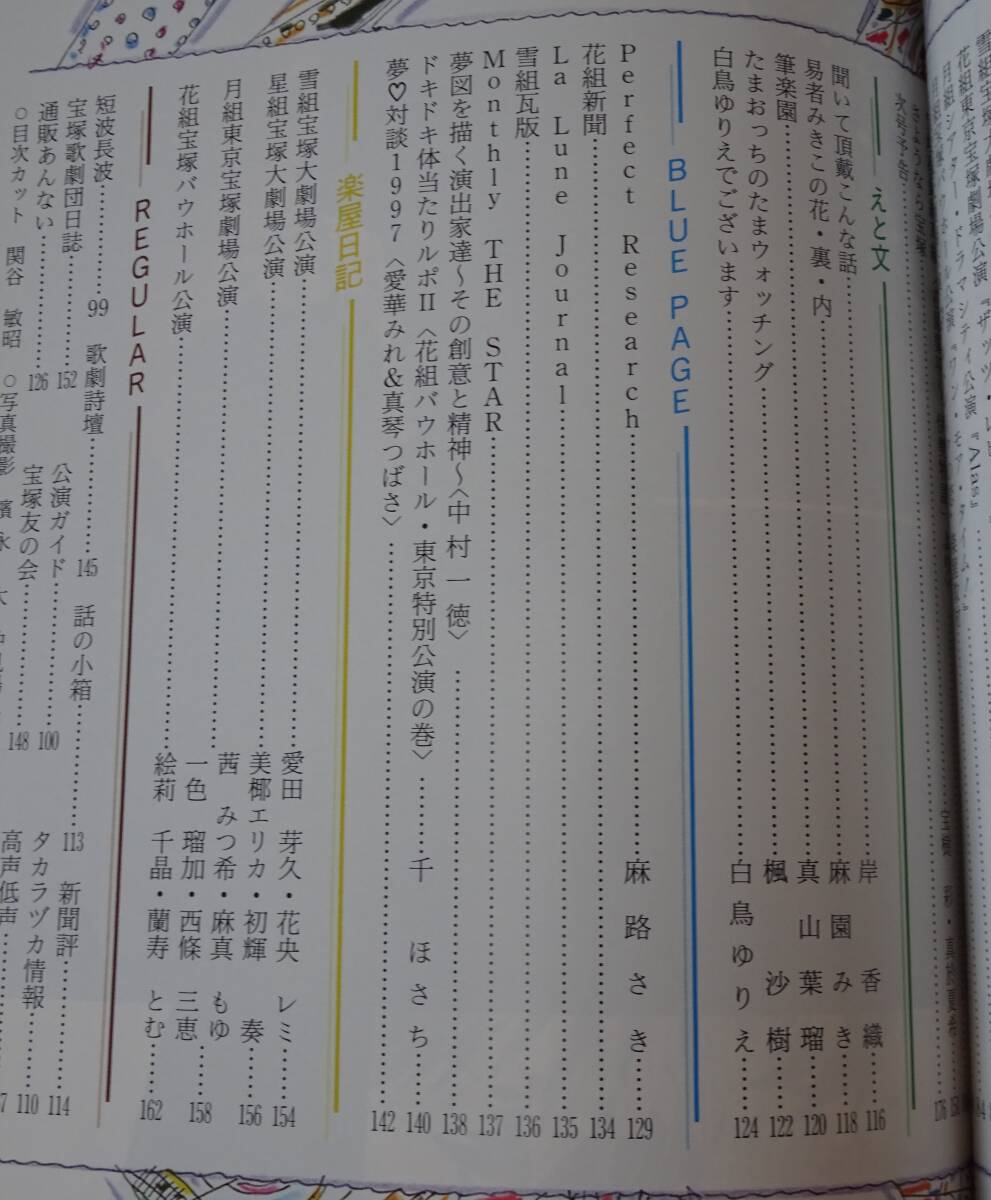 きようなら宝塚
次号予告
えと文
聞いて頂戴こんな話 岸 香織 116
易者みきこの花・裏・内 麻園みき 118
筆楽園 真山葉瑠 120
たまおっちのたまウォッチング 楓 沙樹 122
白鳥ゆりえでございます 白鳥ゆりえ 124
BLUE PAGE
Perfect Research 麻路さき 129
花組新聞 134
La Lune Journal 135
雪組瓦版 136
Monthly THE STAR 137
夢図を描く演出家達～その創意と精神～〈中村一徳〉 138
ドキドキ体当たりルポII〈花組バウホール・東京特別公演の巻〉 千 ほさち 140
夢♡対談1997〈愛華みれ&真琴つばさ〉 142
楽屋日記
雪組宝塚大劇場公演 愛田 芽久・花央 レミ 154
星組宝塚大劇場公演 美椰エリカ・初輝 奏 156
月組東京宝塚劇場公演 茜 みつ希・麻真 もゆ
一色 瑠加・西條 三恵 158
花組宝塚バウホール公演 絵莉 千晶・蘭寿 とむ 162
REGULAR
短波長波 99 歌劇詩壇 145 話の小箱 113 新聞評 114
宝塚歌劇団日誌 152 公演ガイド 100 タカラヅカ情報 110
通販あんない 126 宝塚友の会 148 高声低声
○目次カット 関谷 敏昭 ○写真撮影